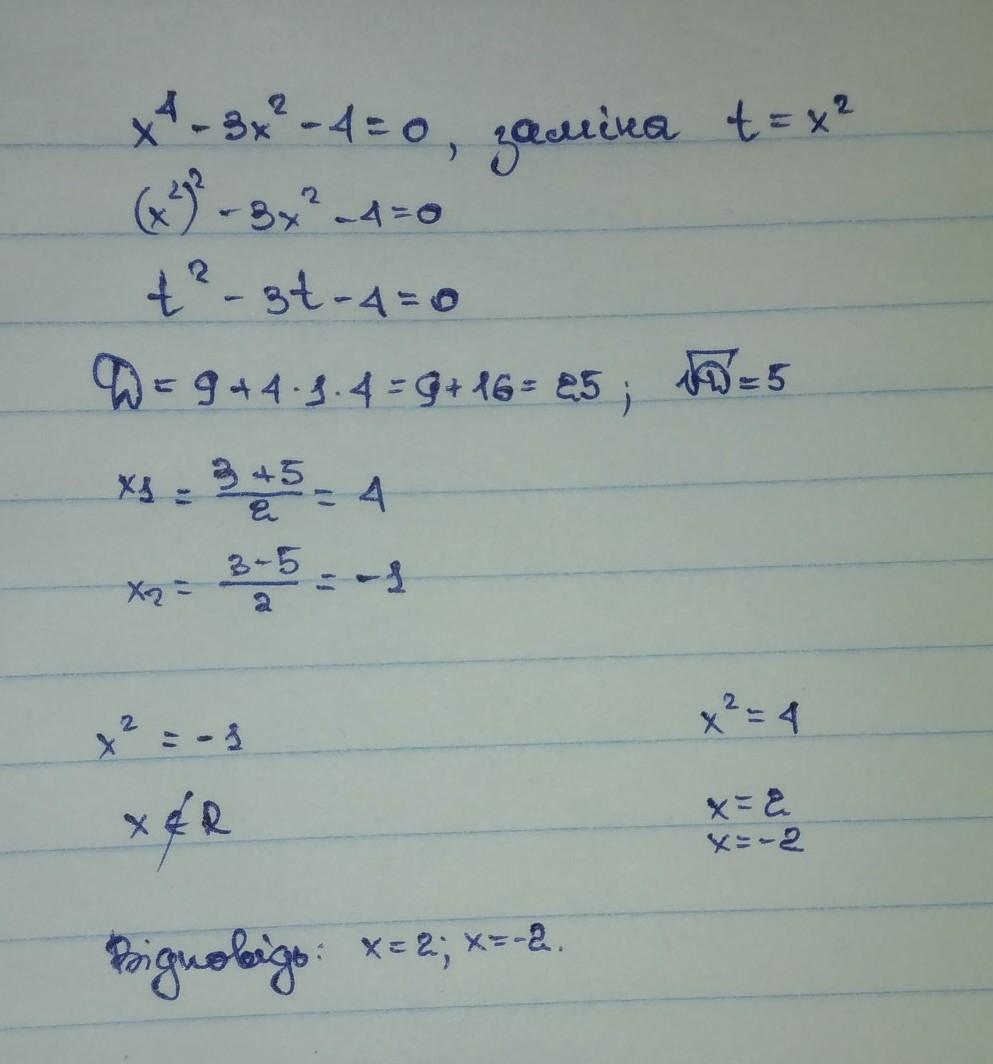 x⁴ - 3x² - 4 = 0, заміна t = x²
(x²)² - 3x² - 4 = 0
t² - 3t - 4 = 0
D = 9 + 4 · 1 · 4 = 9 + 16 = 25; √D = 5
x₁ = (3 + 5)/2 = 4
x₂ = (3 - 5)/2 = -1
x² = -1 x² = 4
x ∉ R x = 2
x = -2
Відповідь: x = 2; x = -2.